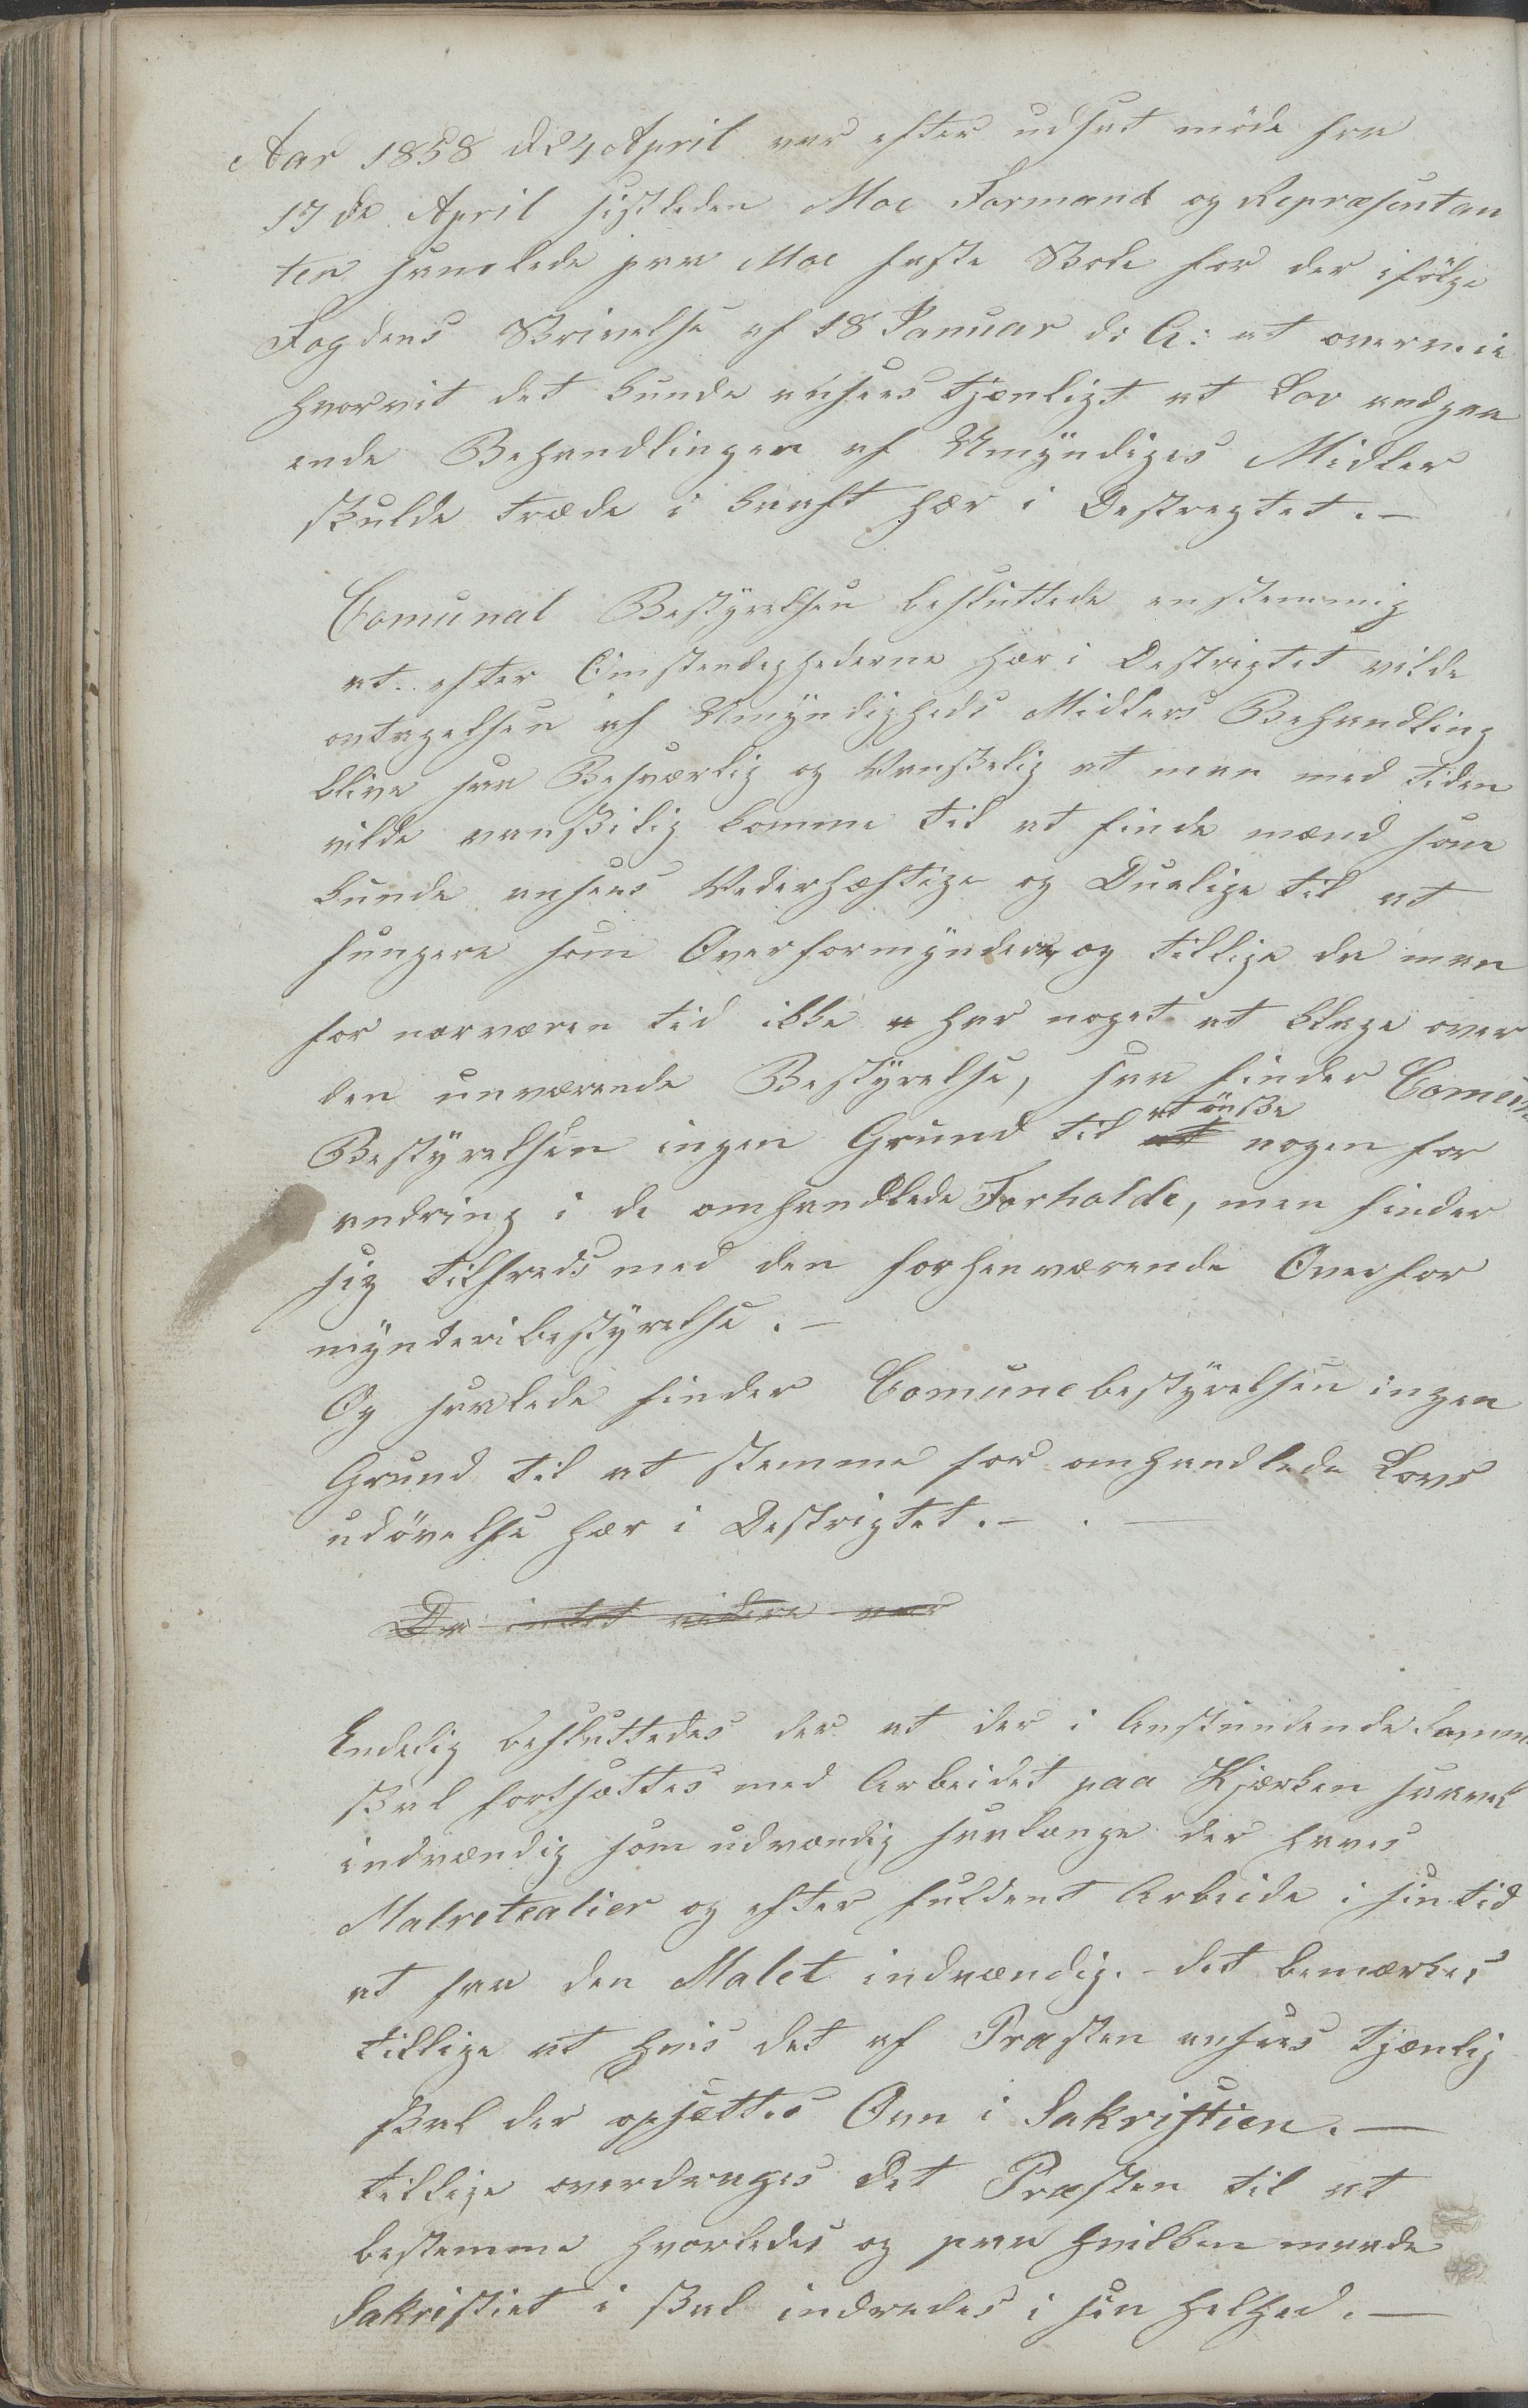 Aar 1858 d 24 April var efter udsat möde fra
17de April sistleden Moe Formand og Repræsentan
ter samlede paa Moe faste Bole for der ifölge
Fogdens Skrivelse af 18 Januar d: A: at overveie
hvorvit det kunde ansees tjenligt at Lov andgaa
ende Behandlingen af Umyndiges Midler
skulde træde i kraft hær i Destregtet. —
Comunal Bestyrelsen besluttede enstemmig
at efter Omstendeghederne hær i Destrigtet vilde
ovtagelsen af Umyndigheds Midlers Behandling
blive saa Besværlig og Vanskelig at man med tiden
vilde vanskilig komme til at finde mænd som
kunde ansees Vederhæftige og Duelige til at
fungere som Overformyndere, og tillige da man
for nærværen tid ikke har noget at klage over
den unværende Bestyrelse, saa finder Comun
Bestyrelsen ingen Grund til at önske nogen for
andring i de omhandlede Forholde, men finder
sig tilfreds med den forhenværende Overfor
mynderibestyrelse. —
Og saalede finder Comunebestyrelsen ingen
Grund til at stemme for omhandlede Lovs
udövelse hær i Destrigtet. —
Da intet videre var
Endelig besluttedes der at der i Anstundende Somm
skal fortsættes med Arbeidet paa Kjærken saavel
indvændig som udvændig saalænge der haves
Malretealier og efter fuldent Arbeide i sin tid
at faa den Malet indvændig. – det bemærkes
tillige at hvis det af Præsten ansees tjænlig
skal der opsættes Ovn i Sakristien. —
tillige overdrages det Præsten til at
bestemme hvorledes og paa hvilken maade
Sakristiet i skal indredes i sin helhed. —